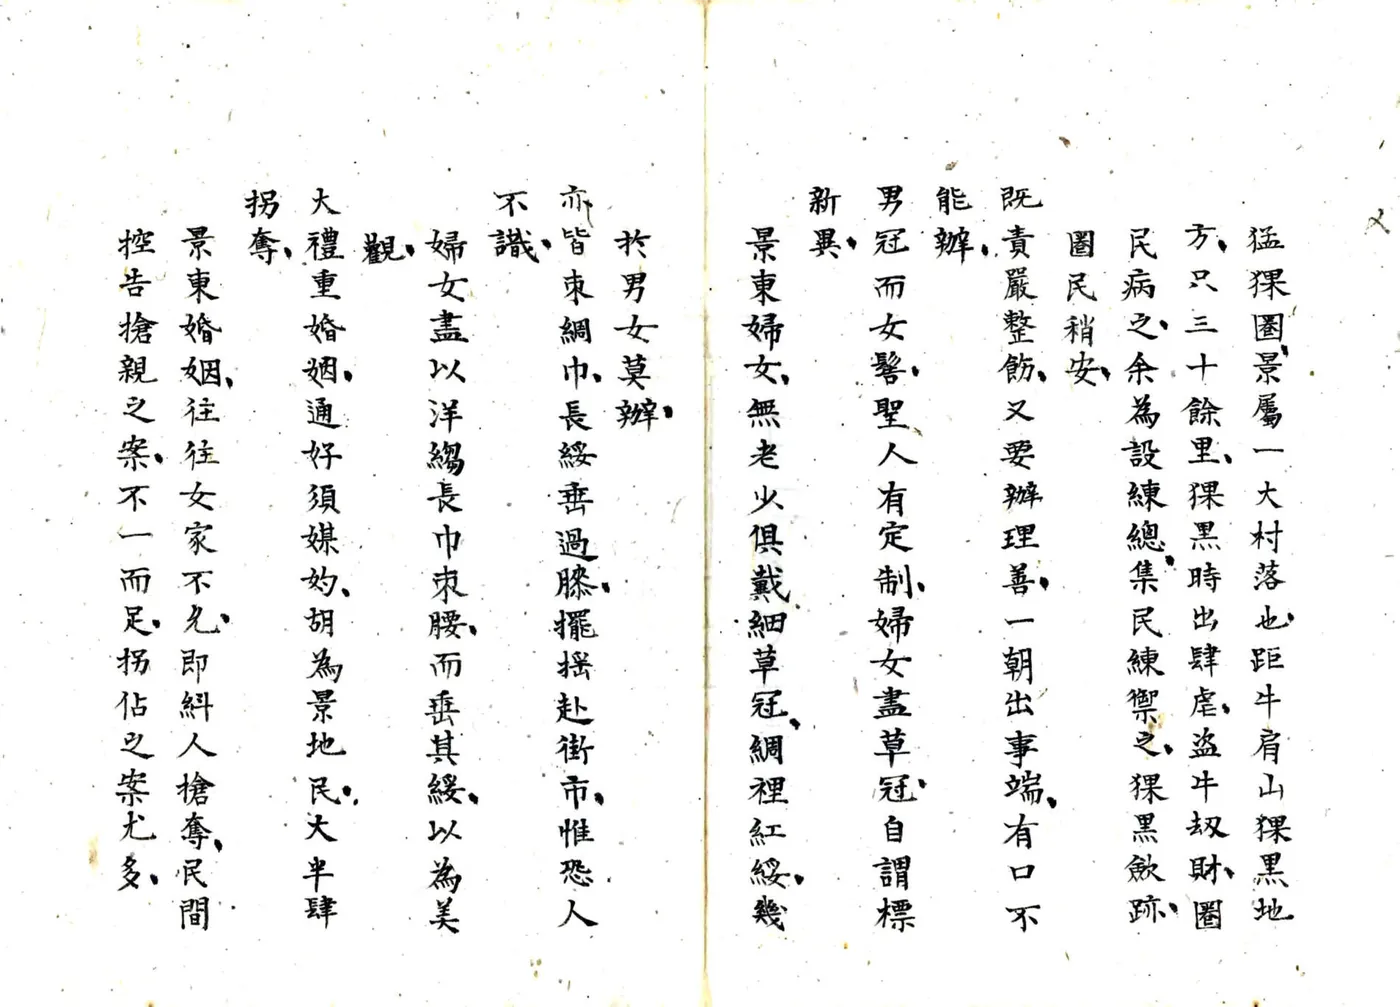 猛猓圈、景屬一大村落也、距牛肩山猓黑地
方、只三十餘里、猓黑時出肆虐、盜牛刼財、圈
民病之、余為設練總、集民練禦之、猓黑歛跡、
圈民稍安、
既責嚴整飭、又要辦理善、一朝出事端、有口不
能辦、
男冠而女髻、聖人有定制、婦女盡草冠、自謂標
新異、
景東婦女、無老少俱戴細草冠、綢裡紅綏、幾
於男女莫辦、
亦皆束綢巾、長綏垂過膝、擺搖赴街市、惟恐人
不識、
婦女盡以洋縐長巾束腰、而垂其綏、以為美
觀、
大禮重婚姻、通好須媒妁、胡為景地民、大半肆
拐奪、
景東婚姻、往往女家不允、即糾人搶奪、民間
控告搶親之案、不一而足、拐佔之案尤多、